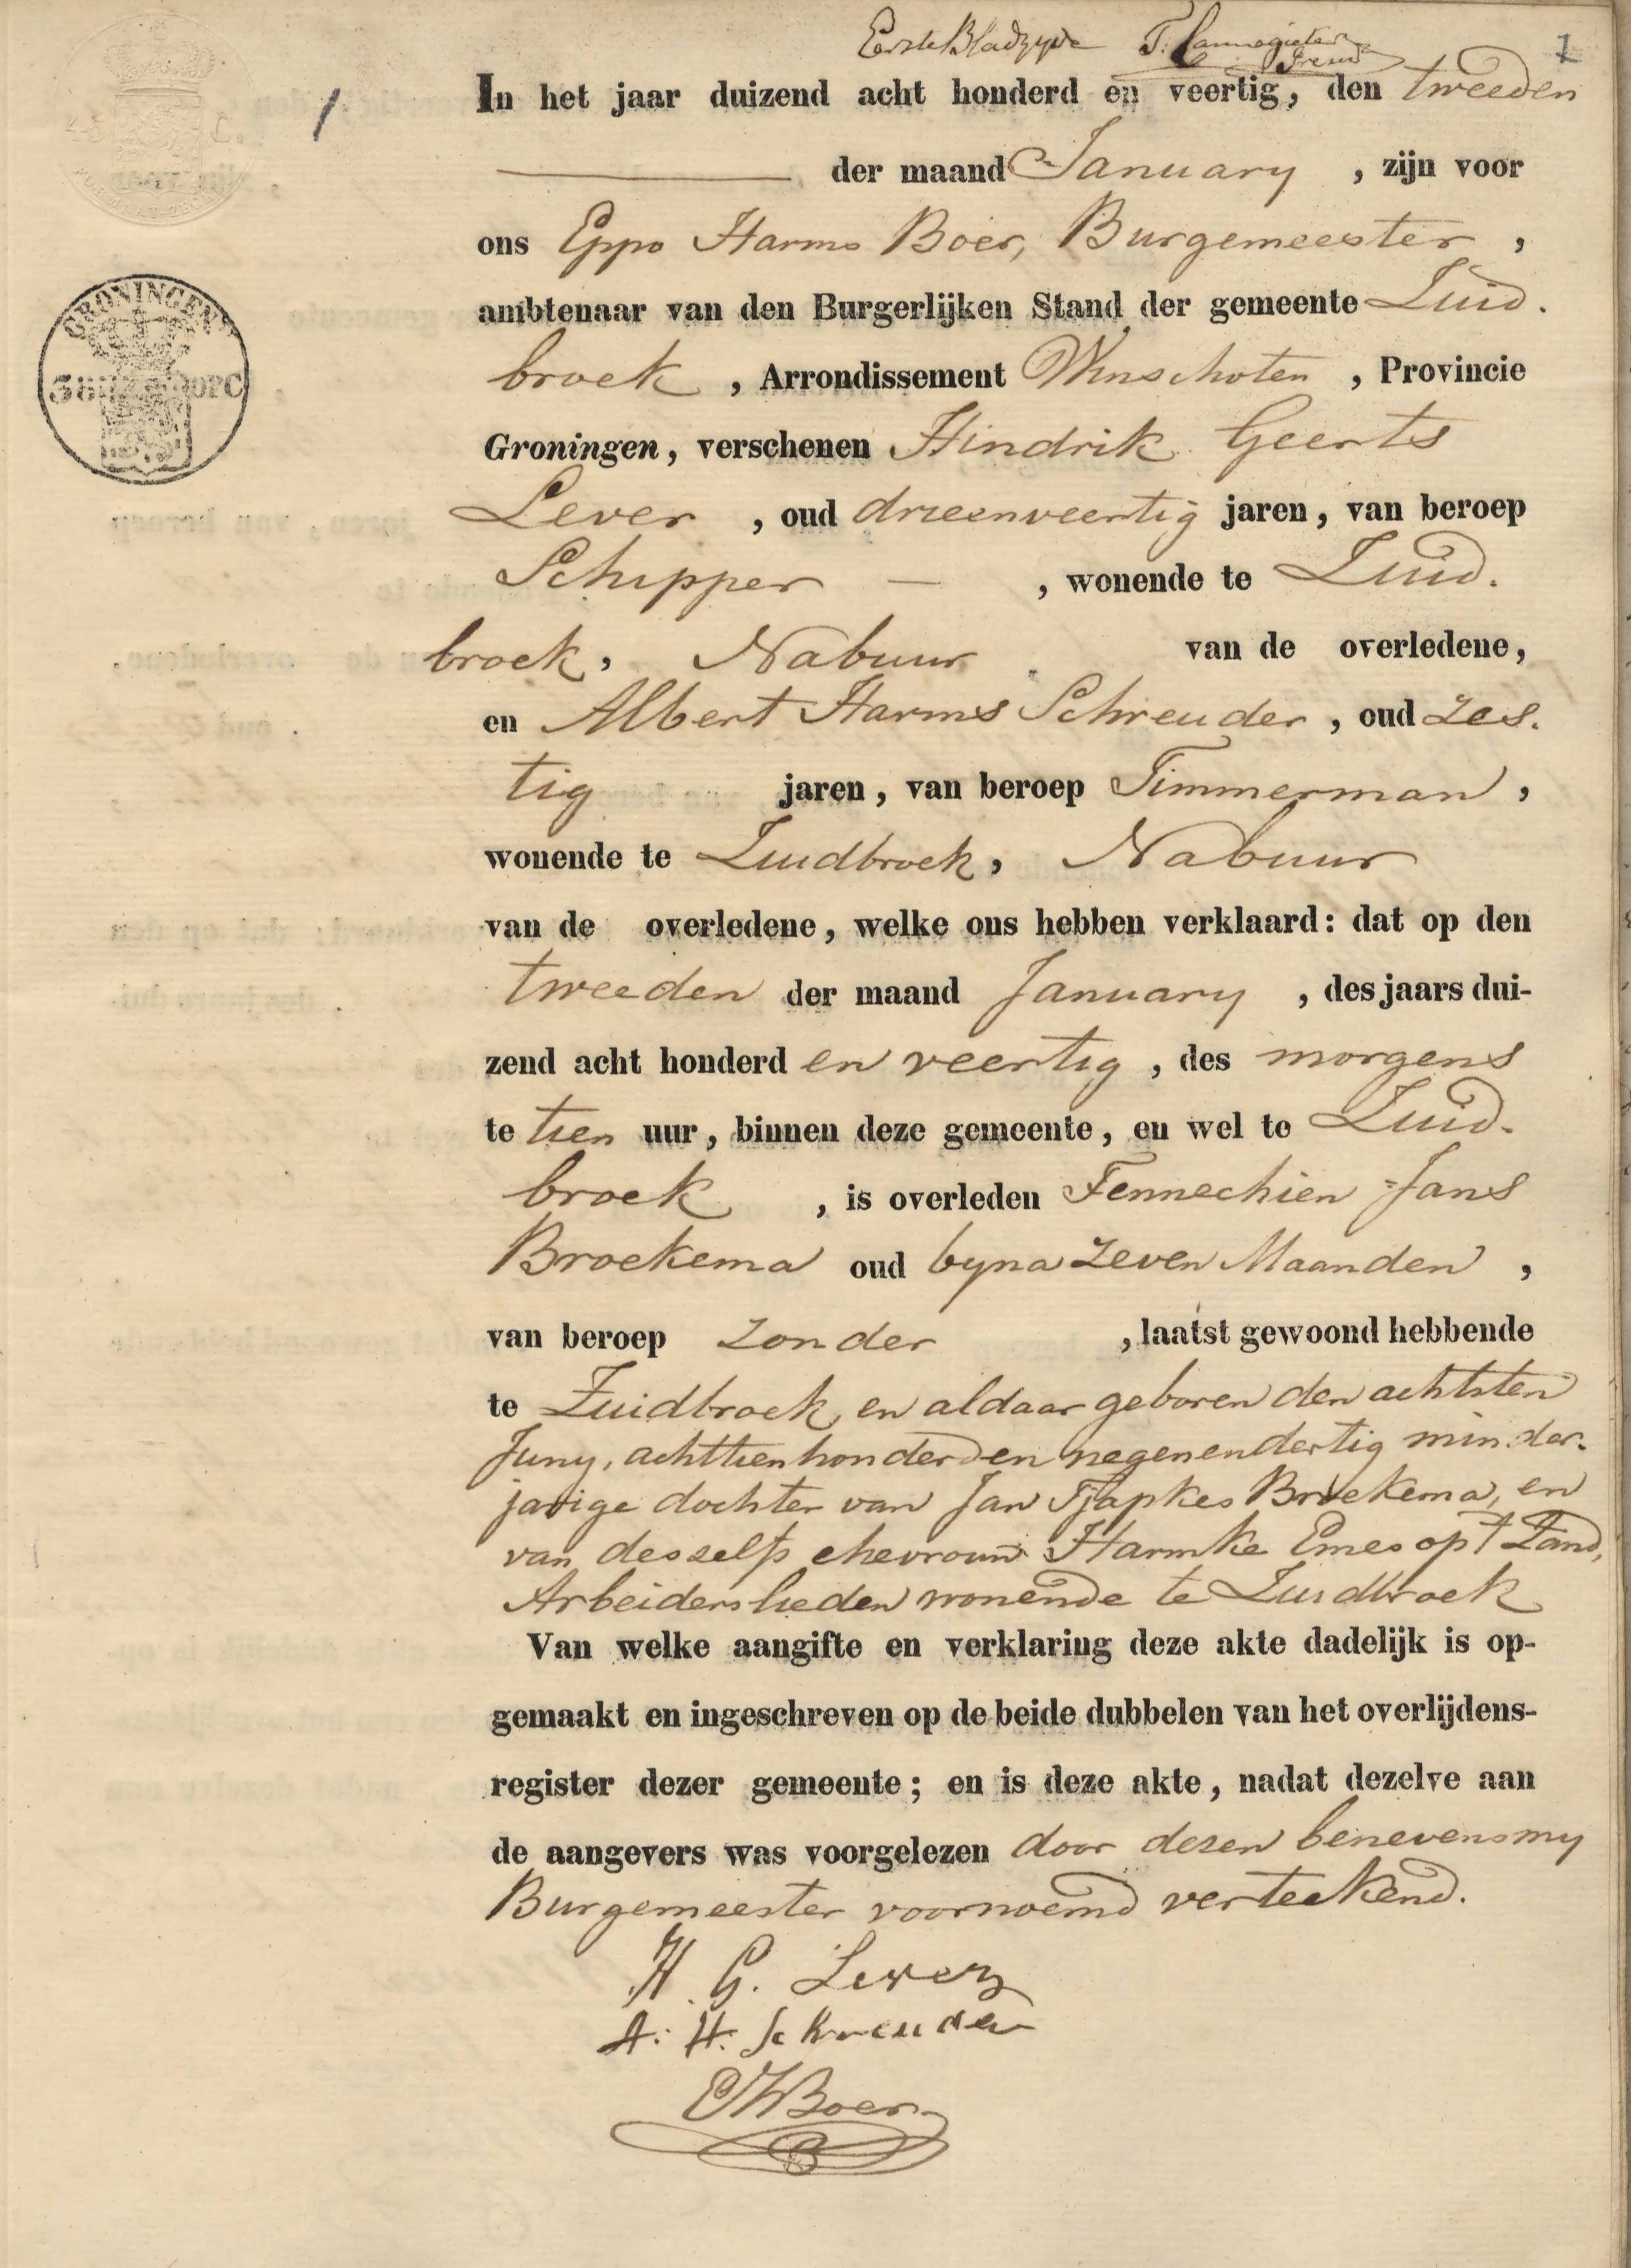 Eerste Bladzyde T. Cannegieter
Presid
1
1
In het jaar duizend acht honderd en veertig, den tweeden
der maand January, zijn voor
ons Eppo Harms Boer, Burgemeester,
ambtenaar van den Burgerlijken Stand der gemeente Zuid-
broek, Arrondissement Winschoten, Provincie
Groningen, verschenen Hindrik Geerts
Lever, oud drieenveertig jaren, van beroep
Schipper —, wonende te Zuid-
broek, Nabuur van de overledene,
en Albert Harms Schreuder, oud zes-
tig jaren, van beroep Timmerman,
wonende te Zuidbroek, Nabuur
van de overledene, welke ons hebben verklaard: dat op den
tweeden der maand January, des jaars dui-
zend acht honderd en veertig, des morgens
te tien uur, binnen deze gemeente, en wel te Zuid-
broek, is overleden Fennechien Jans
Broekema oud byna zeven Maanden,
van beroep zonder, laatst gewoond hebbende
te Zuidbroek, en aldaar geboren den achtsten
Juny, achttienhonderd en negenendertig minder-
jarige dochter van Jan Tjapkes Broekema, en
van deszelfs ehevrouw Harmke Emes op 't Land,
Arbeiderslieden wonende te Zuidbroek
Van welke aangifte en verklaring deze akte dadelijk is op-
gemaakt en ingeschreven op de beide dubbelen van het overlijdens-
register dezer gemeente; en is deze akte, nadat dezelve aan
de aangevers was voorgelezen door dezen benevens my
Burgemeester voornoemd verteekend.
H. G. Lever
A. H. Schreuder
EHBoer
GRONINGEN